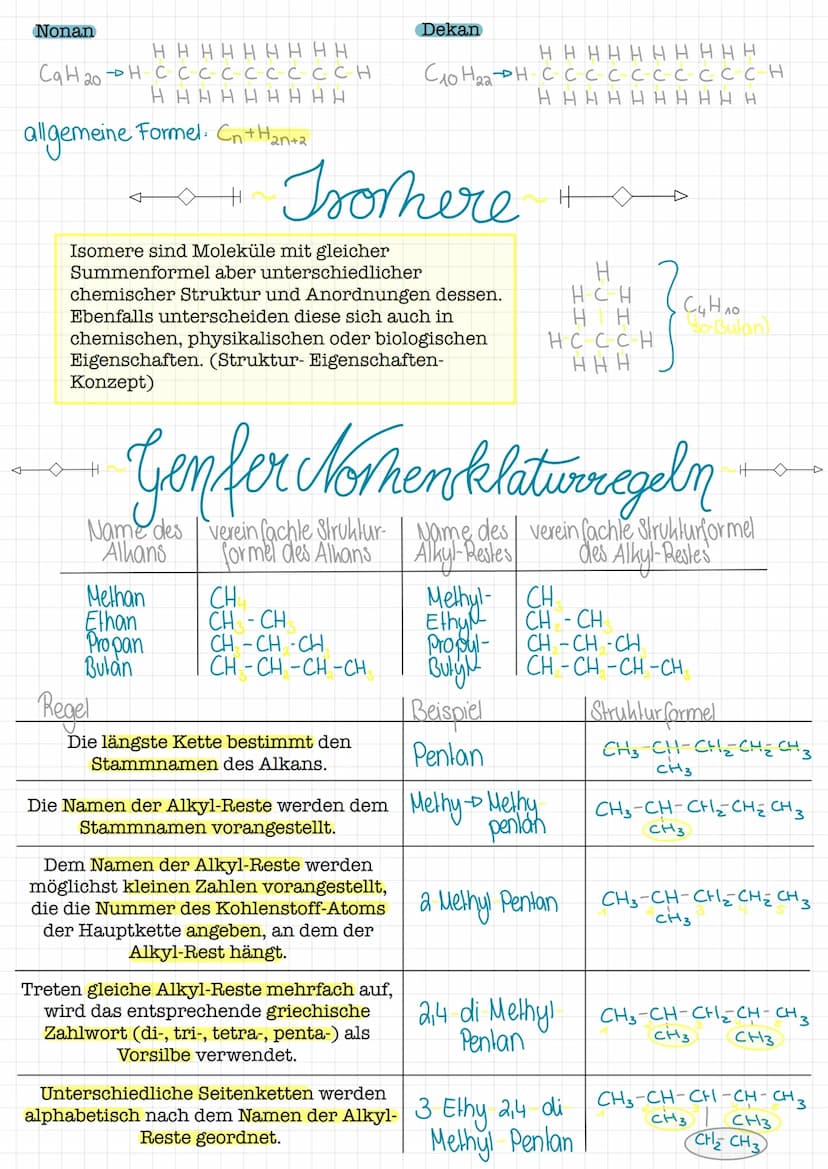 Nonan
Dekan
H H H H H H H H H
C9H20 → H-C-C-C-C-C-C-C-C-C-H
H H H H H H H H H
H H H H H H H H H H
C10H22 → H-C-C-C-C-C-C-C-C-C-C-H
H H H H H H H H H H
allgemeine Formel: Cn+H2n+2
~ Isomere ~
Isomere sind Moleküle mit gleicher
Summenformel aber unterschiedlicher
chemischer Struktur und Anordnungen dessen.
Ebenfalls unterscheiden diese sich auch in
chemischen, physikalischen oder biologischen
Eigenschaften. (Struktur- Eigenschaften-
Konzept)
H
H-C-H
H | H
H-C-C-C-H
H H H
C4H10
(Iso-Butan)
~ Genfer Nomenklaturregeln ~
Name des Alkans
vereinfachte Struktur-
formel des Alkans
Name des Alkyl-Restes
vereinfachte Strukturformel
des Alkyl-Restes
Methan CH4 Methyl- CH3
Ethan CH3 - CH3 Ethyl- CH2 - CH3
Propan CH3 - CH2 - CH3 Propyl- CH2 - CH2 - CH3
Butan CH3 - CH2 - CH2 - CH3 Butyl- CH2 - CH2 - CH2 - CH3
Regel Beispiel Strukturformel
Die längste Kette bestimmt den
Stammnamen des Alkans.
Pentan
CH3-CH-CH2-CH2-CH3
CH3
Die Namen der Alkyl-Reste werden dem
Stammnamen vorangestellt.
Methy → Methy
pentan
CH3-CH-CH2-CH2-CH3
CH3
Dem Namen der Alkyl-Reste werden
möglichst kleinen Zahlen vorangestellt,
die die Nummer des Kohlenstoff-Atoms
der Hauptkette angeben, an dem der
Alkyl-Rest hängt.
2 Methyl Pentan
CH3-CH-CH2-CH2-CH3
CH3
Treten gleiche Alkyl-Reste mehrfach auf,
wird das entsprechende griechische
Zahlwort (di-, tri-, tetra-, penta-) als
Vorsilbe verwendet.
2,4-di Methyl-
Pentan
CH3-CH-CH2-CH-CH3
CH3 CH3
Unterschiedliche Seitenketten werden
alphabetisch nach dem Namen der Alkyl-
Reste geordnet.
3-Ethy-2,4-di
Methyl-Pentan
CH3-CH-CH-CH-CH3
CH3 | CH3
CH2 CH3